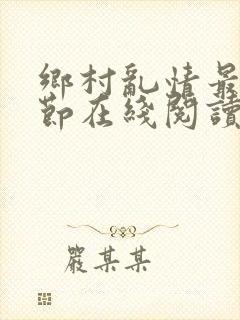 鄉村亂情最
節在綫閱讀
嚴某某